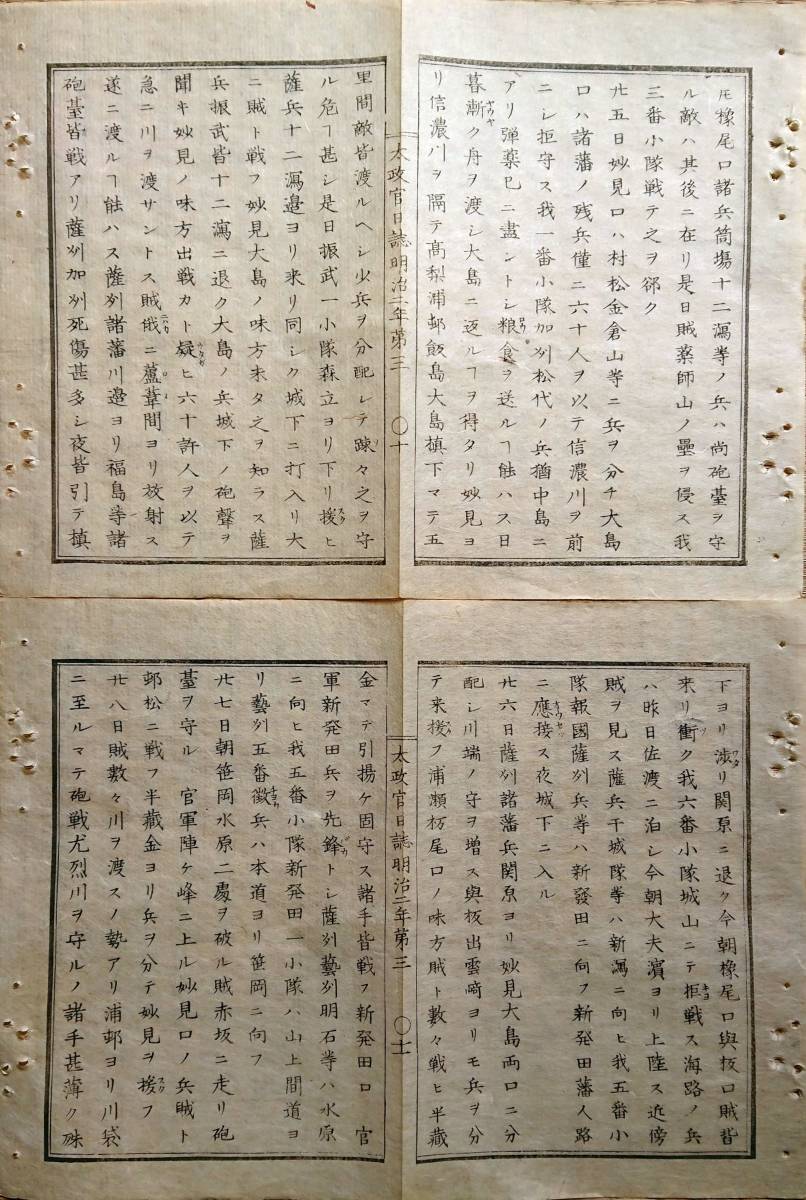 圧橡尾口諸兵筒場十二潟等ノ兵ハ尚砲䑓ヲ守
ル敵ハ其後ニ在リ是日賊薬師山ノ壘ヲ侵ス我
三番小隊戦テ之ヲ郤ク
廿五日妙見口ハ村松金倉山等ニ兵ヲ分チ大島
口ハ諸藩ノ残兵僅ニ六十人ヲ以テ信濃川ヲ前
ニシ拒守ス我一番小隊加刕松代ノ兵猶中島ニ
アリ弾薬已ニ盡ントシ粮食ヲ送ルヿ能ハス日
暮漸ク舟ヲ渡シ大島ニ返ルヿヲ得タリ妙見ヨ
リ信濃川ヲ隔テ高梨浦邨飯島大島槙下マテ五
太政官日誌明治二年第三 〇十
里間敵皆渡ルヘシ少兵ヲ分配シテ踈々之ヲ守
ル危ヿ甚シ是日振武一小隊森立ヨリ下リ援ヒ
薩兵十二潟邉ヨリ来リ同シク城下ニ打入リ大
ニ賊ト戦フ妙見大島ノ味方未タ之ヲ知ラス薩
兵振武皆十二潟ニ退ク大島ノ兵城下ノ砲聲ヲ
聞キ妙見ノ味方出戦カト疑ヒ六十許人ヲ以テ
急ニ川ヲ渡サントス賊俄ニ蘆葦間ヨリ放射ス
遂ニ渡ルヿ能ハス薩刕諸藩川邉ヨリ福島等諸
砲䑓皆戦アリ薩刕加刕死傷甚多シ夜皆引テ槙
下ヨリ渉リ関原ニ退ク今朝橡尾口與板口賊皆
来リ衝ク我六番小隊城山ニテ拒戦ス海路ノ兵
ハ昨日佐渡ニ泊シ今朝大夫濱ヨリ上陸ス近傍
賊ヲ見ス薩兵干城隊等ハ新潟ニ向ヒ我五番小
隊報國薩刕兵等ハ新發田ニ向フ新発田藩人路
ニ應接ス夜城下ニ入ル
廿六日薩刕諸藩兵関原ヨリ妙見大島両口ニ分
配シ川端ノ守ヲ増ス與板出雲﨑ヨリモ兵ヲ分
テ来援フ浦瀬枋尾口ノ味方賊ト數々戦ヒ半藏
太政官日誌明治二年第三 〇十一
金マテ引揚ケ固守ス諸手皆戦フ新発田口 官
軍新発田兵ヲ先鋒トシ薩刕藝刕明石等ハ水原
ニ向ヒ我五番小隊新発田一小隊ハ山上間道ヨ
リ藝刕五番徴兵ハ本道ヨリ笹岡ニ向フ
廿七日朝笹岡水原二處ヲ破ル賊赤坂ニ走リ砲
䑓ヲ守ル 官軍陣ヶ峰ニ上ル妙見口ノ兵賊ト
邨松ニ戦フ半藏金ヨリ兵ヲ分テ妙見ヲ援フ
廿八日賊數々川ヲ渡スノ勢アリ浦邨ヨリ川袋
ニ至ルマテ砲戦尤烈川ヲ守ルノ諸手甚薄ク殊